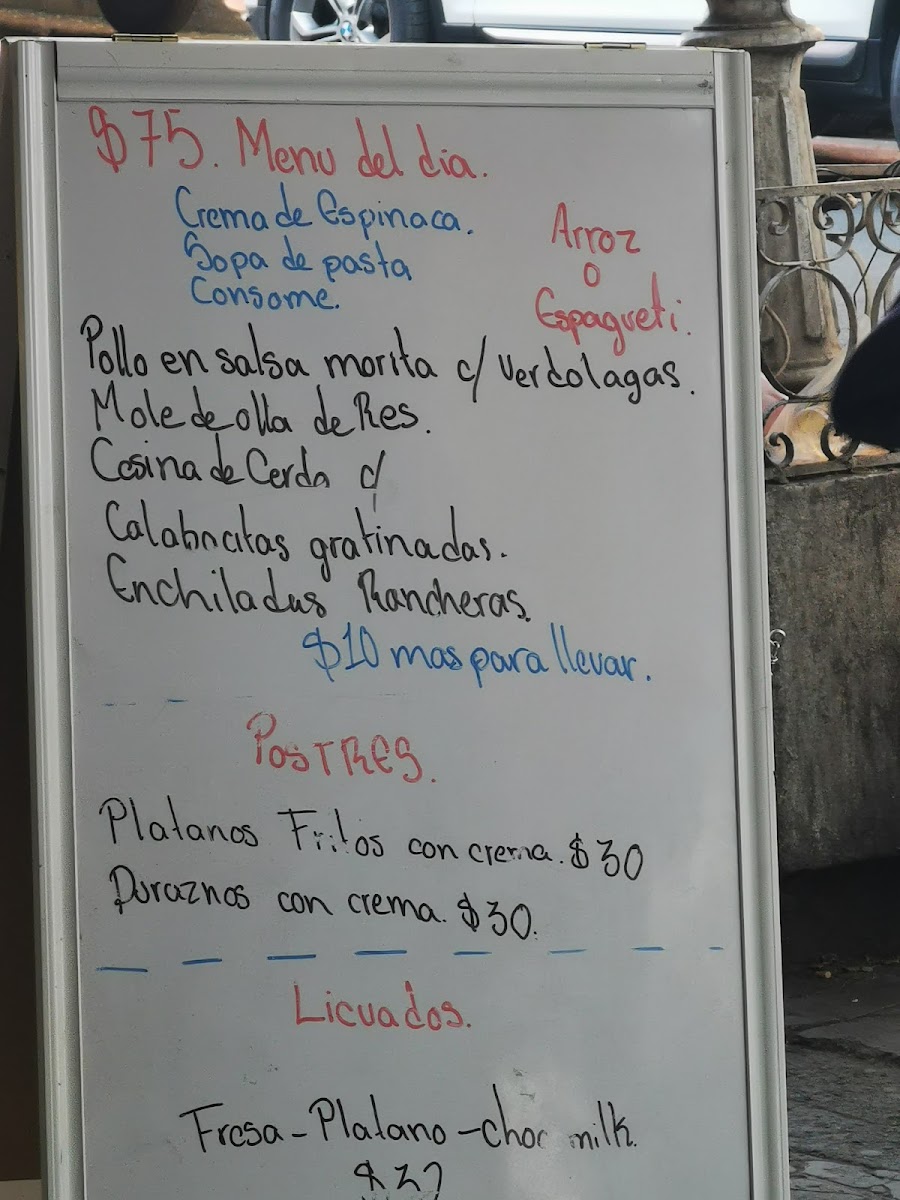 $75. Menu del dia.
Crema de Espinaca.
Sopa de pasta
Consome.
Arroz
o
Espagueti.
Pollo en salsa morita c/ verdolagas.
Mole de olla de Res.
Cesina de Cerdo c/
Calabacitas gratinadas.
Enchiladas Rancheras.
$10 mas para llevar.
POSTRES.
Platanos Fritos con crema. $30
Duraznos con crema. $30.
Licuados.
Fresa - Platano - choc milk.